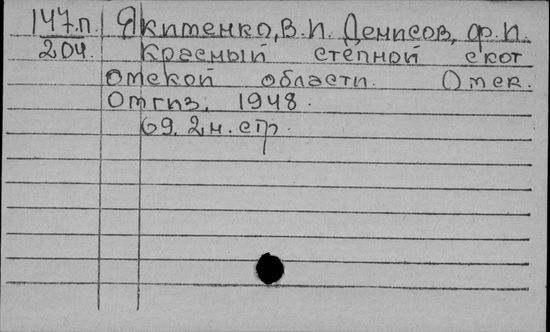 147.п. Якименко, В.П. Денисов, Ф.П.
204. Красный степной скот
Омской области. Омск.
Омгиз, 1948.
69, 2 н. стр.